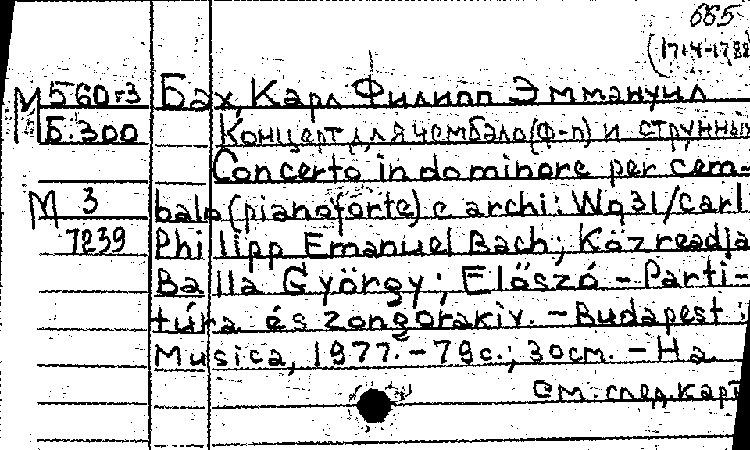 685
(1714-1788
М 560-3 Бах, Карл Филипп Эммануил
Б.300 Концерт для чембало (ф-п) и струнны
Concerto in do minore per cem-
М 3 balo (pianoforte) e archi: Wq31/Carl
7239 Philipp Emanuel Bach; Közreadja
Balla György; Előszó - Parti-
túra és zongorakiv. - Budapest:
Musica, 1977. - 79с.; 30cm. - На
См. след. карт